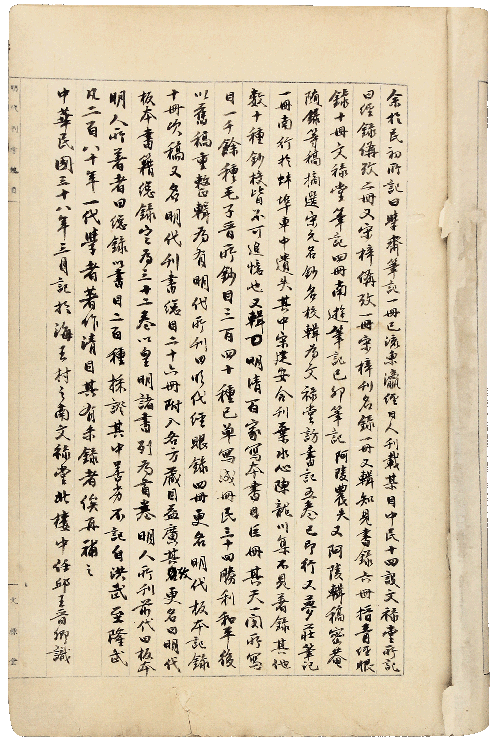 余於民初所記曰學齋筆記一冊已流東瀛經日人刊載某目中民十四設文祿堂所記
曰經錄偁攷二冊又宋梓偁攷一冊宋梓刊名錄一冊又輯知見書錄六冊揩青經眼
錄十冊文祿堂筆記四冊南遊筆記己卯筆記阿陵農夫又阿陵輯稿密菴
隨錄等稿摘選宋元名鈔名校輯為文祿堂訪書記五卷已印行又夢莊筆記
一冊南行於蚌埠車中遺失其中宋建安合刊葉水心陳龍川集不見著錄其他
數十種鈔校皆不可追憶也又輯明清百家寫本書目巨冊其天一閣所寫
目一千餘種毛子晉所鈔目三百四十種已單寫成冊民三十四勝利和平後
以舊稿重整輯為有明代所刊曰明代經眼錄四冊更名明代板本記錄
十冊次稿又名明代刊書總目二十六冊附入各方藏目益廣其攷更名曰明代
板本書籍總錄定為三十二卷以皇明諸書列為首卷明人所刊前代曰板本
明人所著者曰總錄以書目二百種採證其中善劣不記自洪武至隆武
凡二百八十年一代學者著作清目其有未錄者俟再補之
中華民國三十八年三月記於海王村之南文祿堂北樓中任邱王晉卿識
明代刊書總目
文祿堂